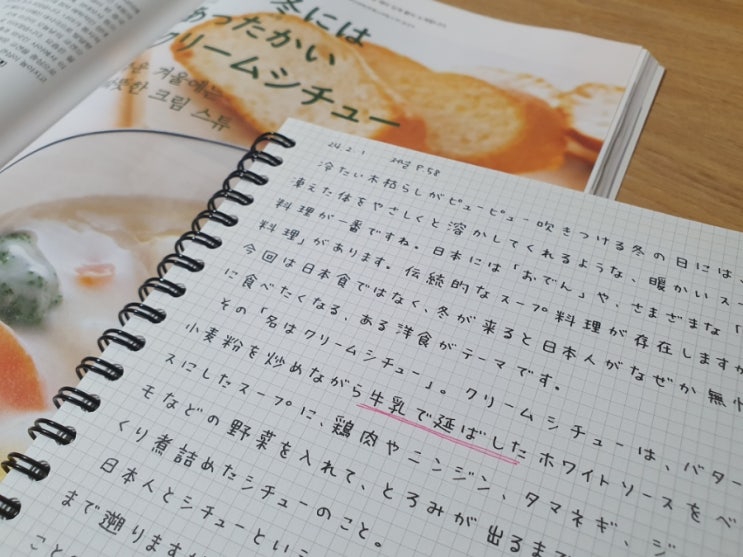 冬には
あったかい
クリームシチュー
겨울에는
크림 스튜
24.2.1 P.58
冷たい木枯らしがピューピュー吹きつける冬の日には、
凍えた体をやさしくと溶かしてくれるような、暖かいスー
料理が一番ですね。日本には「おでん」や、さまざまな「
料理」があります。伝統的なスープ料理が存在しますが
今回は日本食ではなく、冬が来ると日本人がなぜか無性
に食べたくなる、ある洋食がテーマです。
その「名はクリームシチュー」。クリームシチューは、バター
小麦粉を炒めながら牛乳で延ばしたホワイトソースをベ
スにしたスープに、鶏肉やニンジン、タマネギ、ジ
モなどの野菜を入れて、とろみが出るま
くり煮詰めたシチューのこと。
日本人とシチューとい
まで遡ります
ことの